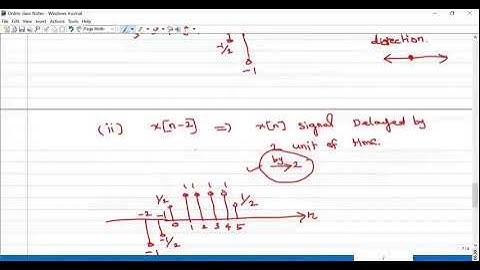 Online class Notes - Windows Journal
File Edit View Insert Actions Tools Help
Page Width
-1/2
-1
direction.
(ii) x[n-2] ⇒ x[n] signal Delayed by
2 unit of time.
by
2
1/2 1 1 1 1 1/2
-2 -1 0 1 2 3 4 5 n
-1/2
-1